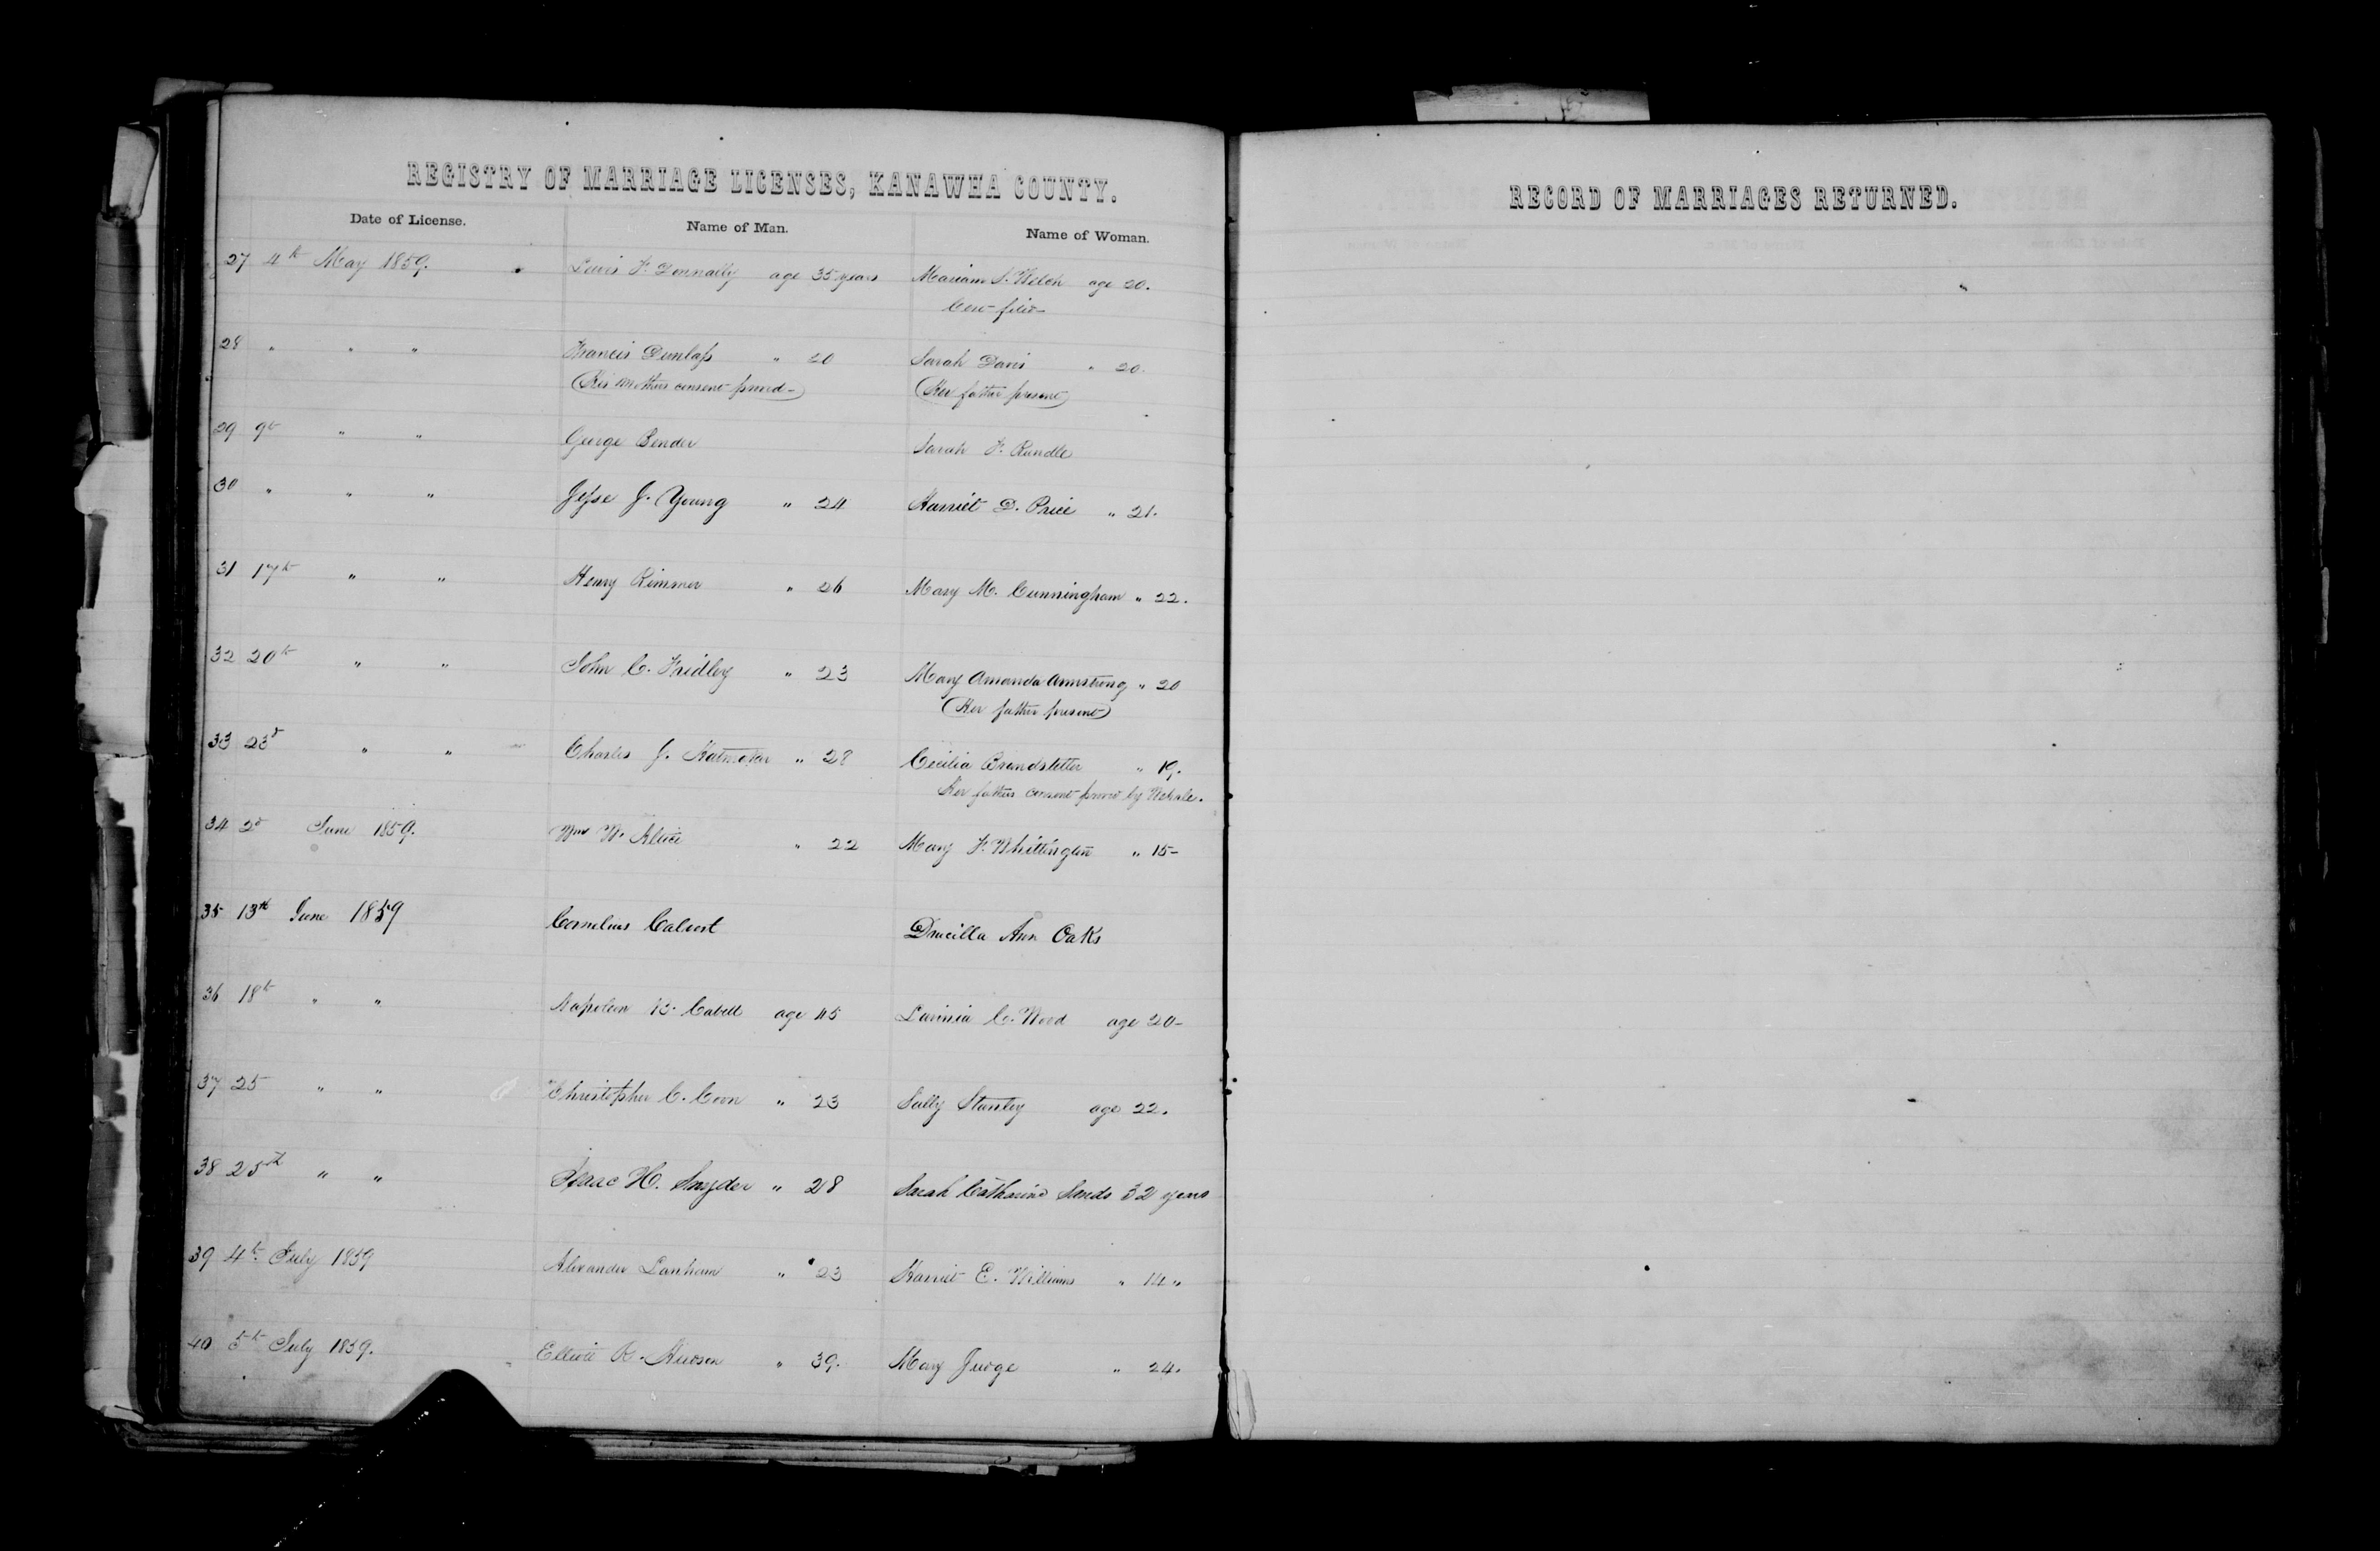 REGISTRY OF MARRIAGE LICENSES, KANAWHA COUNTY.
Date of License. Name of Man. Name of Woman.
27 4th May 1859. Lewis F. Donnally age 35 years Mariam S. Welch age 20.
28 " " " Francis Dunlap " 20 Sarah Davis " 20.
(His mothers consent proved) (Her father present)
29 9th " " George Bender Sarah F. Rundle
30 " " " Jesse J. Young " 24 Harriet D. Price " 21.
31 17th " " Henry Rimmer " 26 Mary M. Cunningham " 22.
32 20th " " John C. Fridley " 23 Mary Amanda Armstrong " 20
(Her father present)
33 23d " " Charles J. " 28 Cecilia Brandstetter " 19.
Her fathers consent proved by
34 2d June 1859. Wm W. Altice " 22 Mary F. Whittington " 15-
35 13th June 1859 Cornelius Calvert Drucilla Ann Oaks
36 18th " " Napoleon B. Cabell age 45 Lavinia C. Wood age 20-
37 25 " " Christopher C. Coon " 23 Sally Stanley age 22.
38 25th " " Isaac H. Snyder " 28 Sarah Catharine Sands 32 years
39 4th July 1859 Alexander Lanham " 23 Harriet E. Williams " 14 "
40 5th July 1859. Elliott R. Hudson " 39. Mary Judge " 24.
RECORD OF MARRIAGES RETURNED.